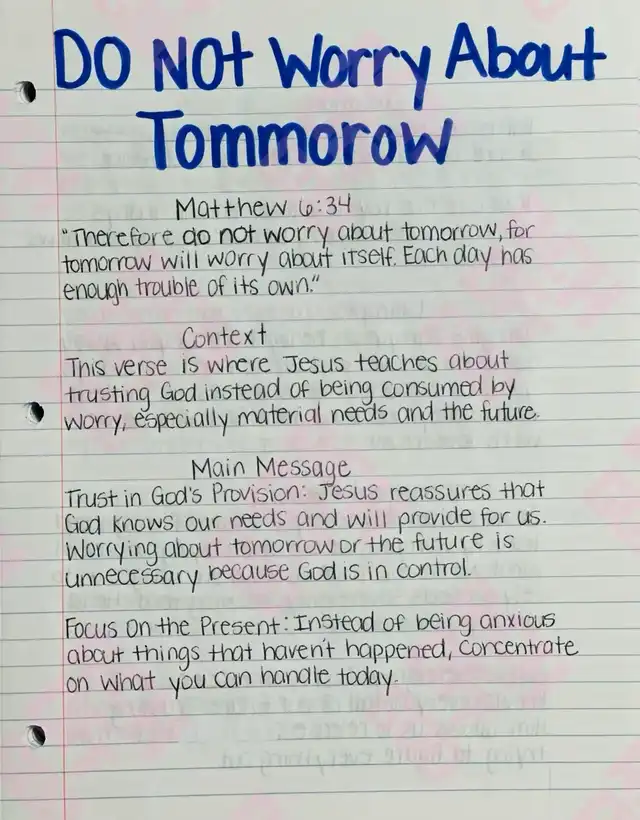 DO NOt Worry About
Tommorow
Matthew 6:34
"Therefore do not worry about tomorrow, for
tomorrow will worry about itself. Each day has
enough trouble of its own."
Context
This verse is where Jesus teaches about
trusting God instead of being consumed by
worry, especially material needs and the future.
Main Message
Trust in God's Provision: Jesus reassures that
God knows our needs and will provide for us.
Worrying about tomorrow or the future is
unnecessary because God is in control.
Focus on the Present: Instead of being anxious
about things that haven't happened, concentrate
on what you can handle today.